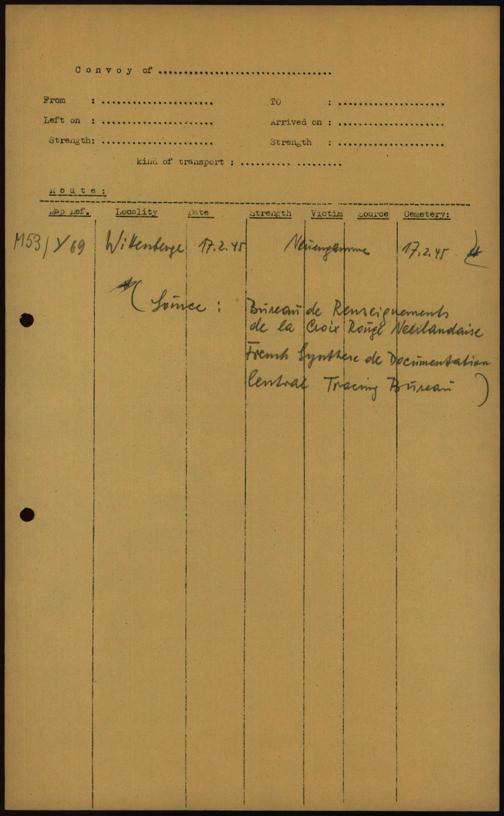 Convoy of ................................
From : ......................
TO : .....................
Left on : ......................
Arrived on : .....................
Strength: ......................
Strength : .....................
kind of transport : .......... .........
Route:
Map Ref. Locality Date Strength Victim Source Cemetery:
M53/Y69 Wittenberge 17.2.45 Neuengamme 17.2.45 *
*(Source : Bureau de Renseignements
de la Croix Rouge Neerlandaise
French Synthese de Documentation
Central Tracing Bureau )